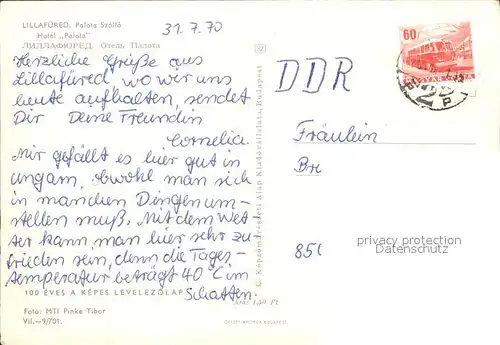 LILLAFÜRED. Palota Szálló
Hotel „Palota"
ЛИЛЛАФЮРЕД. Отель Палота
31.7.70
Herzliche Grüße aus
Lillafüred, wo wir uns
heute aufhalten, sendet
Dir Deine Freundin
Cornelia.
Mir gefällt es hier gut in
Ungarn, obwohl man sich
in manchen Dingen um-
stellen muß. Mit dem Wet-
ter kann man hier sehr zu
frieden sein, denn die Tages-
temperatur beträgt 40°C im
Schatten.
100 ÉVES A KÉPES LEVELEZŐLAP
Ára: 1,50 Ft
Foto: MTI Pinke Tibor
Vil.—9/701.
OFFSET NYOMDA BUDAPEST
© Képzőművészeti Alap Kiadóvállalata, Budapest
60f
MAGYAR POSTA
DDR
Fräulein
Bre
850
privacy protection
Datenschutz